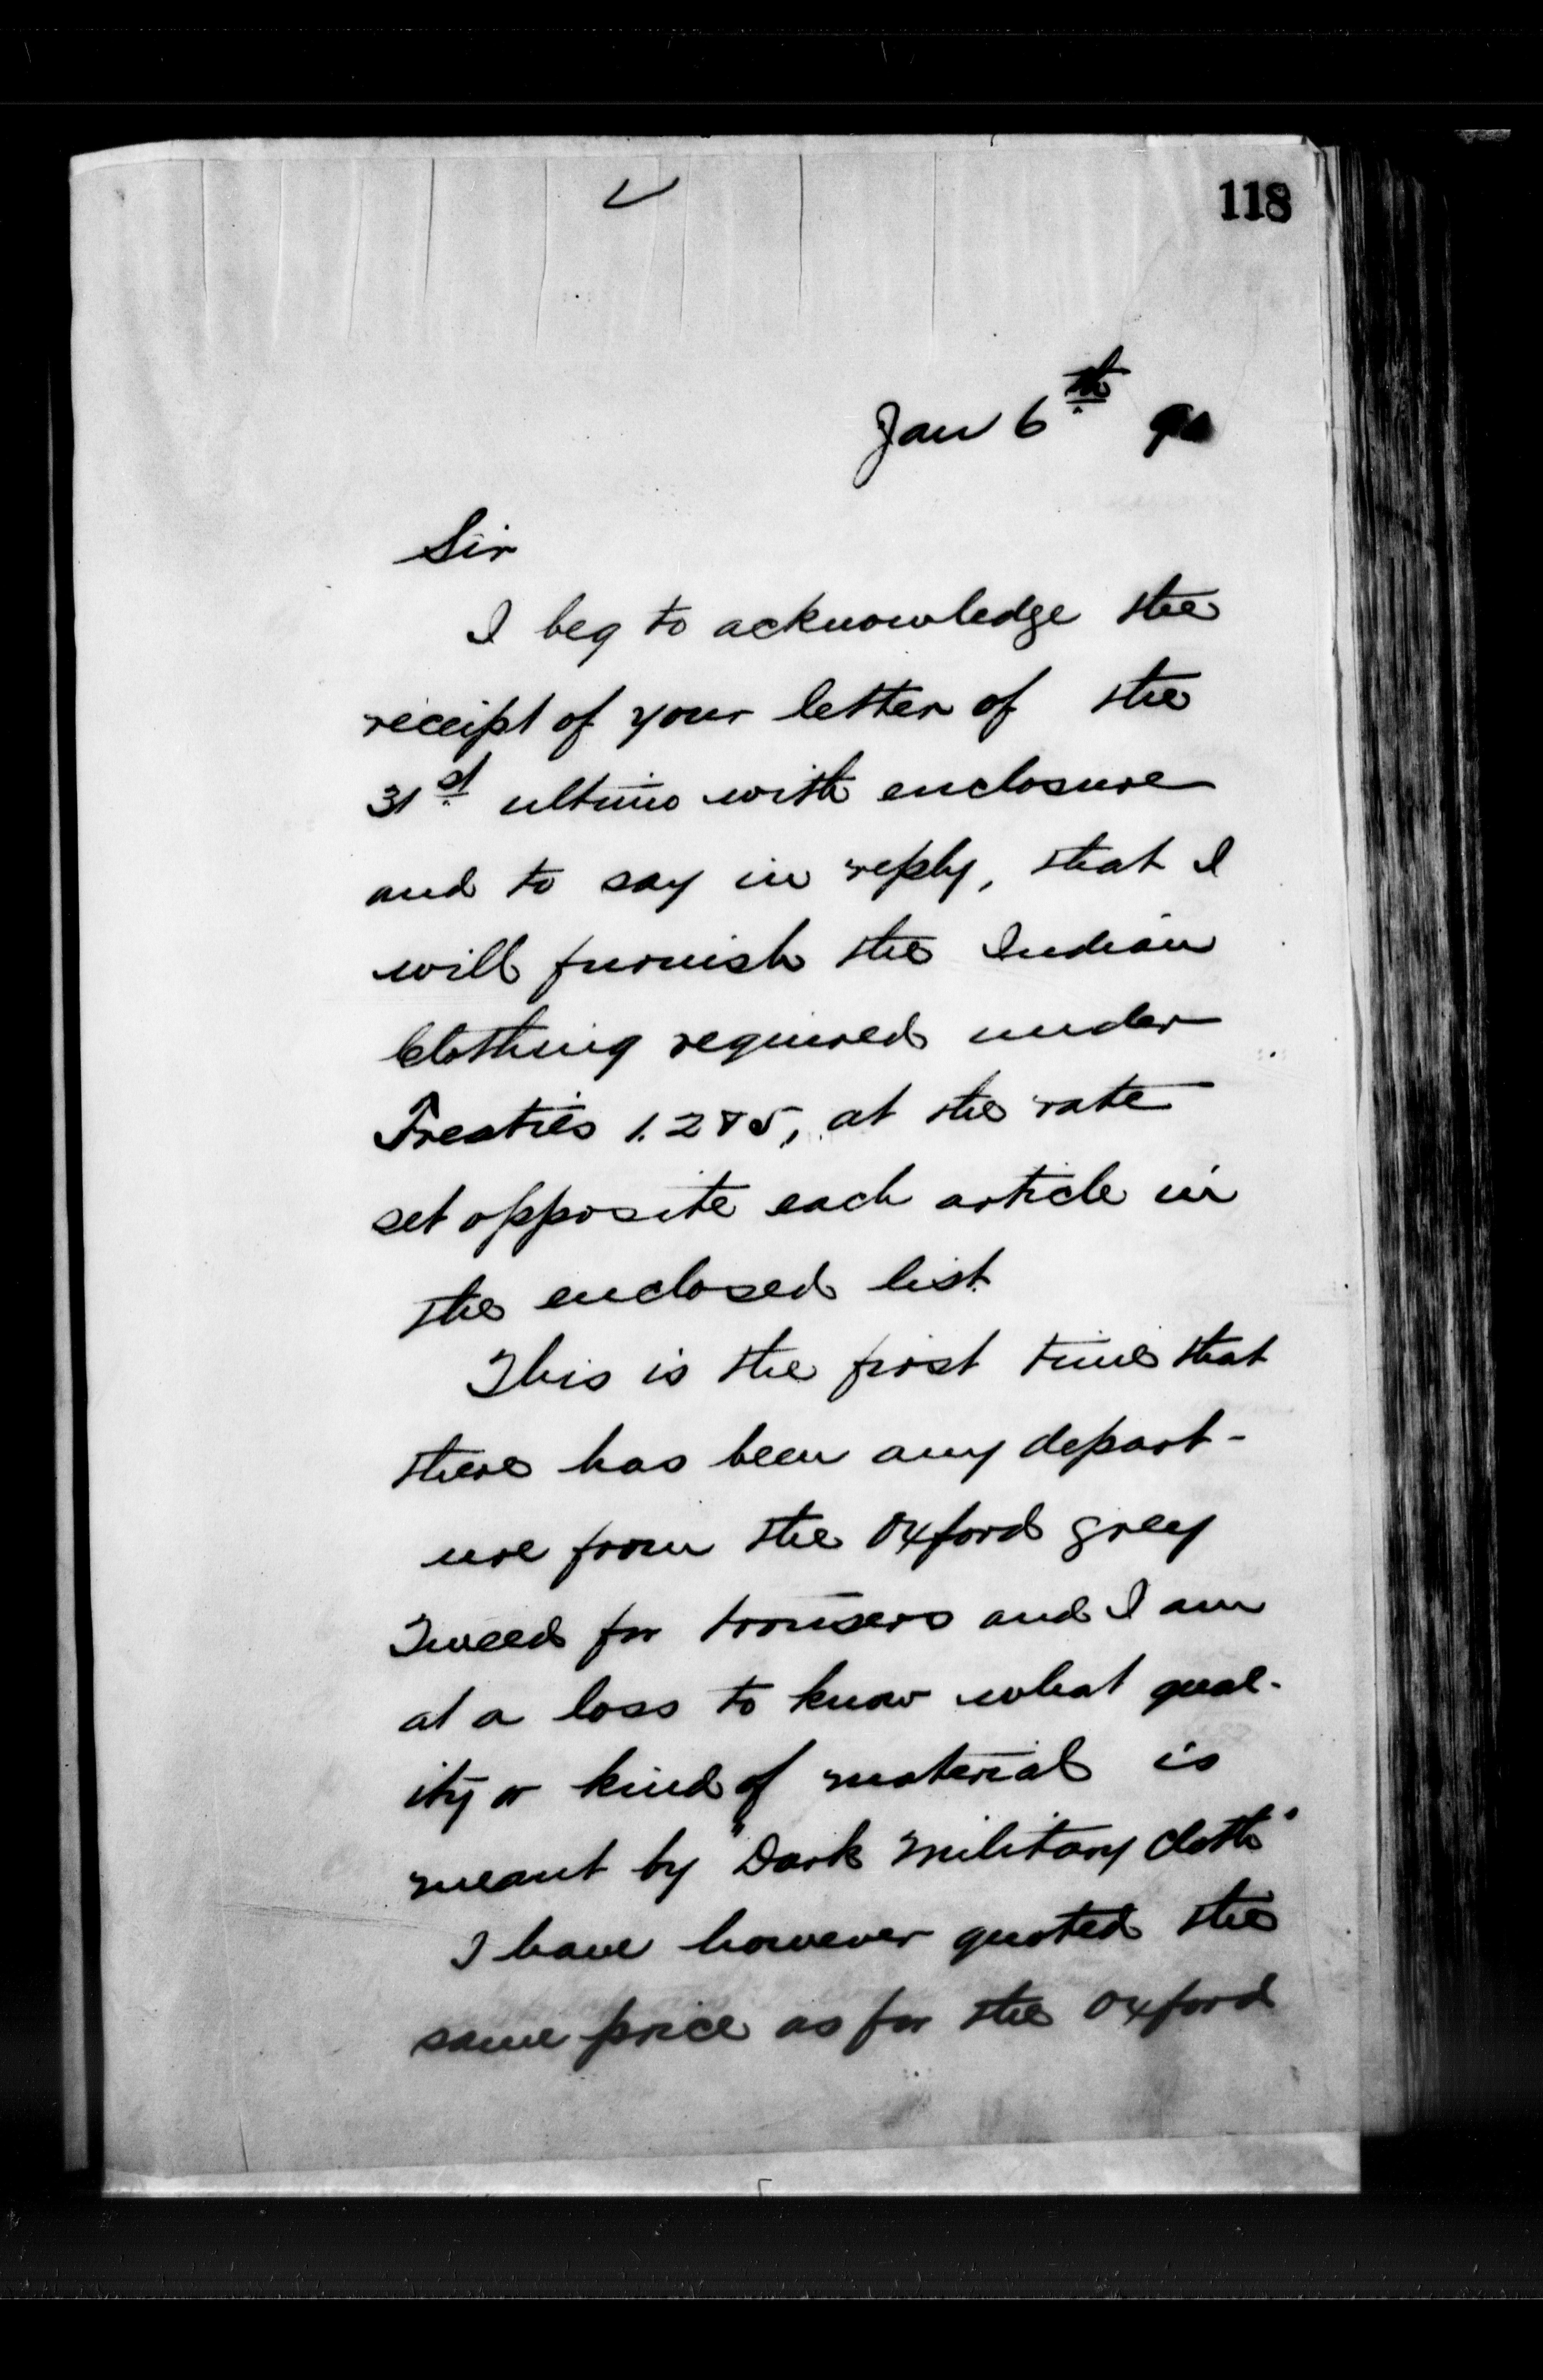 118
Jan 6th 90
Sir
I beg to acknowledge the
receipt of your letter of the
31st ultimo with enclosure
and to say in reply, that I
will furnish the Indian
Clothing required under
Treaties 1. 2 & 5, at the rate
set opposite each article in
the enclosed list.
This is the first time that
there has been any depart-
ure from the Oxford grey
Tweed for trousers and I am
at a loss to know what qual-
ity or kind of material is
meant by "Dark Military Cloth"
I have however quoted the
same price as for the Oxford